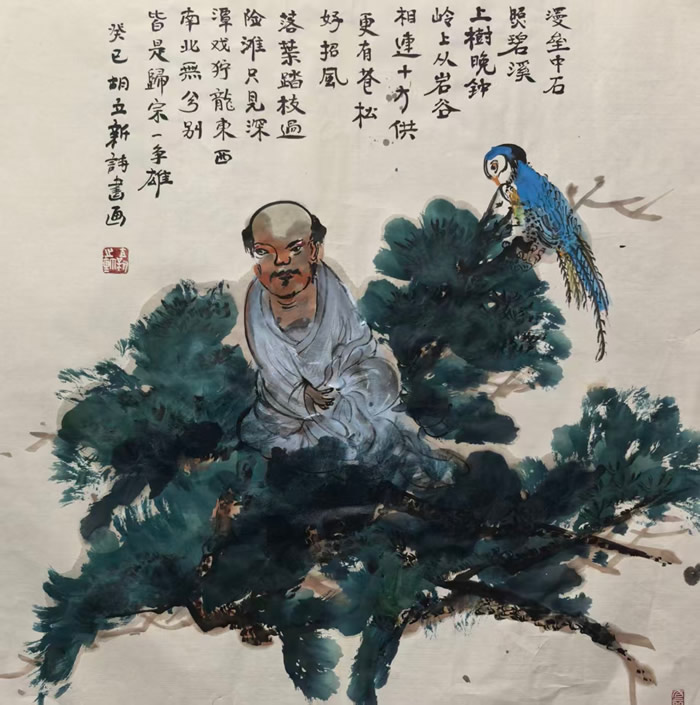 漫垒中石
照碧溪
上樹晚鈡
岭上从岩谷
相連十方供
更有苍松
好招風
落葉踏枝過
险滩只見深
潭戏狞龍東西
南北無分别
皆是歸宗一争雄
癸巳胡立新詩書画